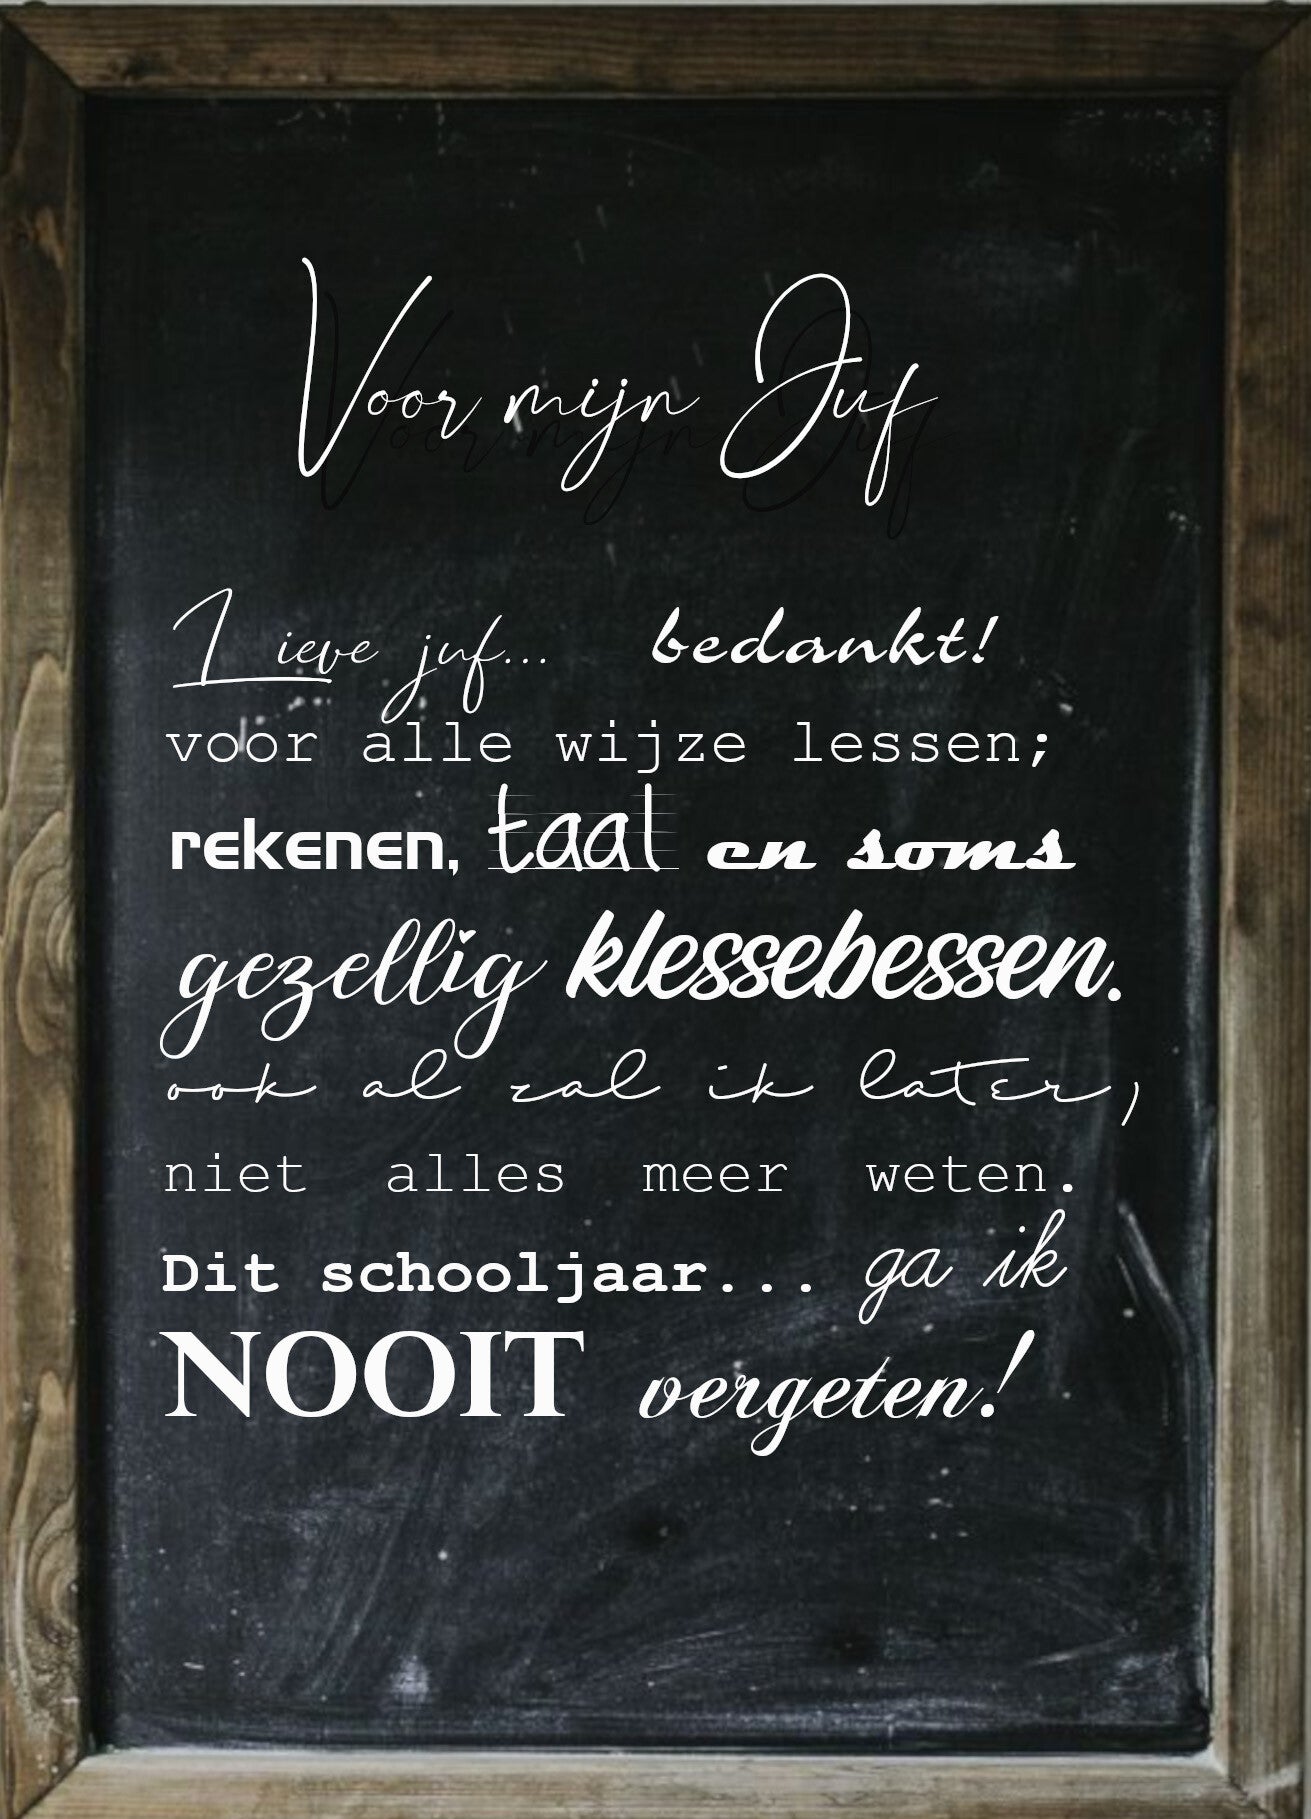 Voor mijn Juf
Lieve juf... bedankt!
voor alle wijze lessen;
rekenen, taal en soms
gezellig klessebessen.
ook al zal ik later,
niet alles meer weten.
Dit schooljaar... ga ik
NOOIT vergeten!